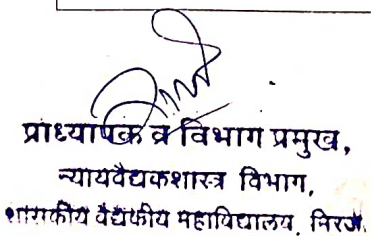 प्राध्यापक व विभाग प्रमुख,
न्यायवैद्यकशास्त्र विभाग,
शासकीय वैद्यकीय महाविद्यालय, मिरज.